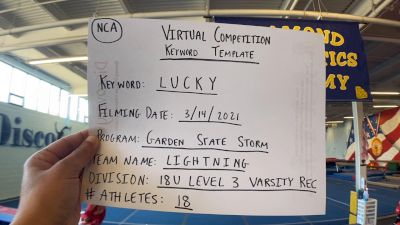 NCA
VIRTUAL COMPETITION
KEYWORD TEMPLATE
KEYWORD: LUCKY
FILMING DATE: 3/14/2021
PROGRAM: GARDEN STATE STORM
TEAM NAME: LIGHTNING
DIVISION: 18U LEVEL 3 VARSITY REC
# ATHLETES: 18